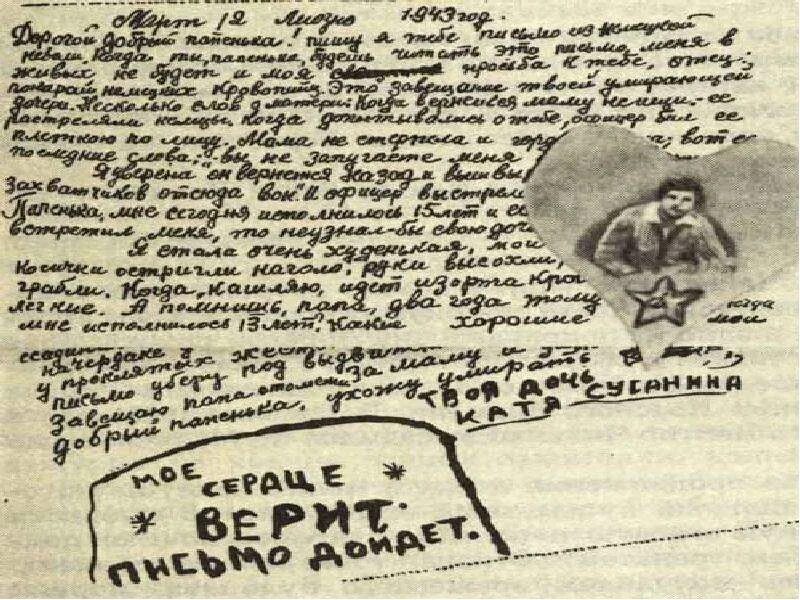 Март 12 Лиозно 1943 год.
Дорогой добрый папенька! пишу я тебе письмо из немецкой
неволи. Когда ты, папенька, будешь читать это письмо, меня в
живых не будет и моя просьба к тебе, отец:
покарай немецких кровопийц. Это завещание твоей умирающей
дочери. Несколько слов о матери: когда вернешься маму не ищи - ее
растреляли немцы. Когда допытывались о тебе, офицер бил ее
плеткою по лицу, мама не стерпела и гордо вот ее
последние слова: "вы не запугаете меня
Я уверена он вернется назад и вышвы
захватчиков отсюда вон" и офицер выстрел
Папенька, мне сегодня исполнилось 15 лет и ес
встретил меня, то неузнал-бы свою доч
Я стала очень худенькая, мои
косички остригли наголо, руки высохли,
грабли. Когда, кашляю, идет изорта кро
легкие. А помнишь, папа, два года тому когда
мне исполнилось 13 лет? Какие хорошие мои
на чердаке
у проклятых жест
письмо уберу под выдвиг
Завещаю папа отомсти за маму и
добрый папенька, ухожу умирать
ТВОЯ ДОЧЬ
КАТЯ СУСАНИНА
МОЕ
СЕРДЦЕ
ВЕРИТ.
ПИСЬМО ДОЙДЕТ.